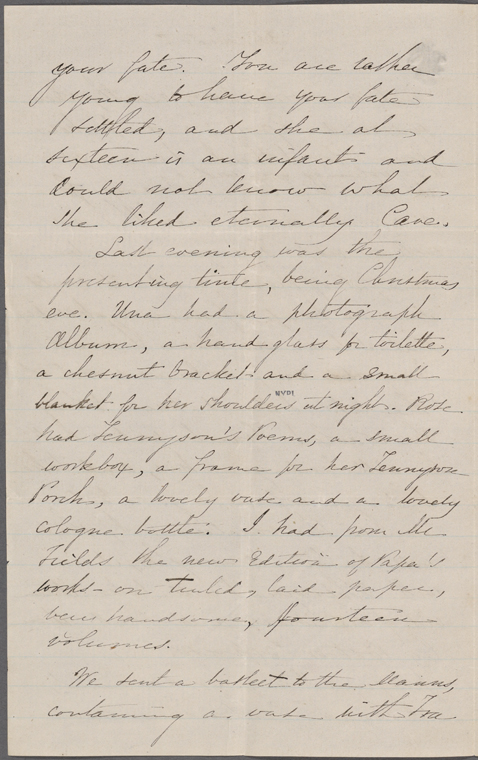 your fate. You are rather
young to have your fate
settled, and she at
sixteen is an infant and
could not know what
she liked eternally. Care.
Last evening was the
presenting time, being Christmas
eve. Una had a photograph
Album, a hand glass for toilette,
a chesnut bracket and a small
blanket for her shoulders at night. Rose
NYPL
had Tennyson's Poems, a small
workbox, a frame for her Tennyson
, a lovely vase and a lovely
cologne bottle. I had from Mr
Fields the new Edition of Papa's
works - on tinted, laid paper,
very handsome, fourteen
volumes.
We sent a basket to the Manns,
containing a vase with